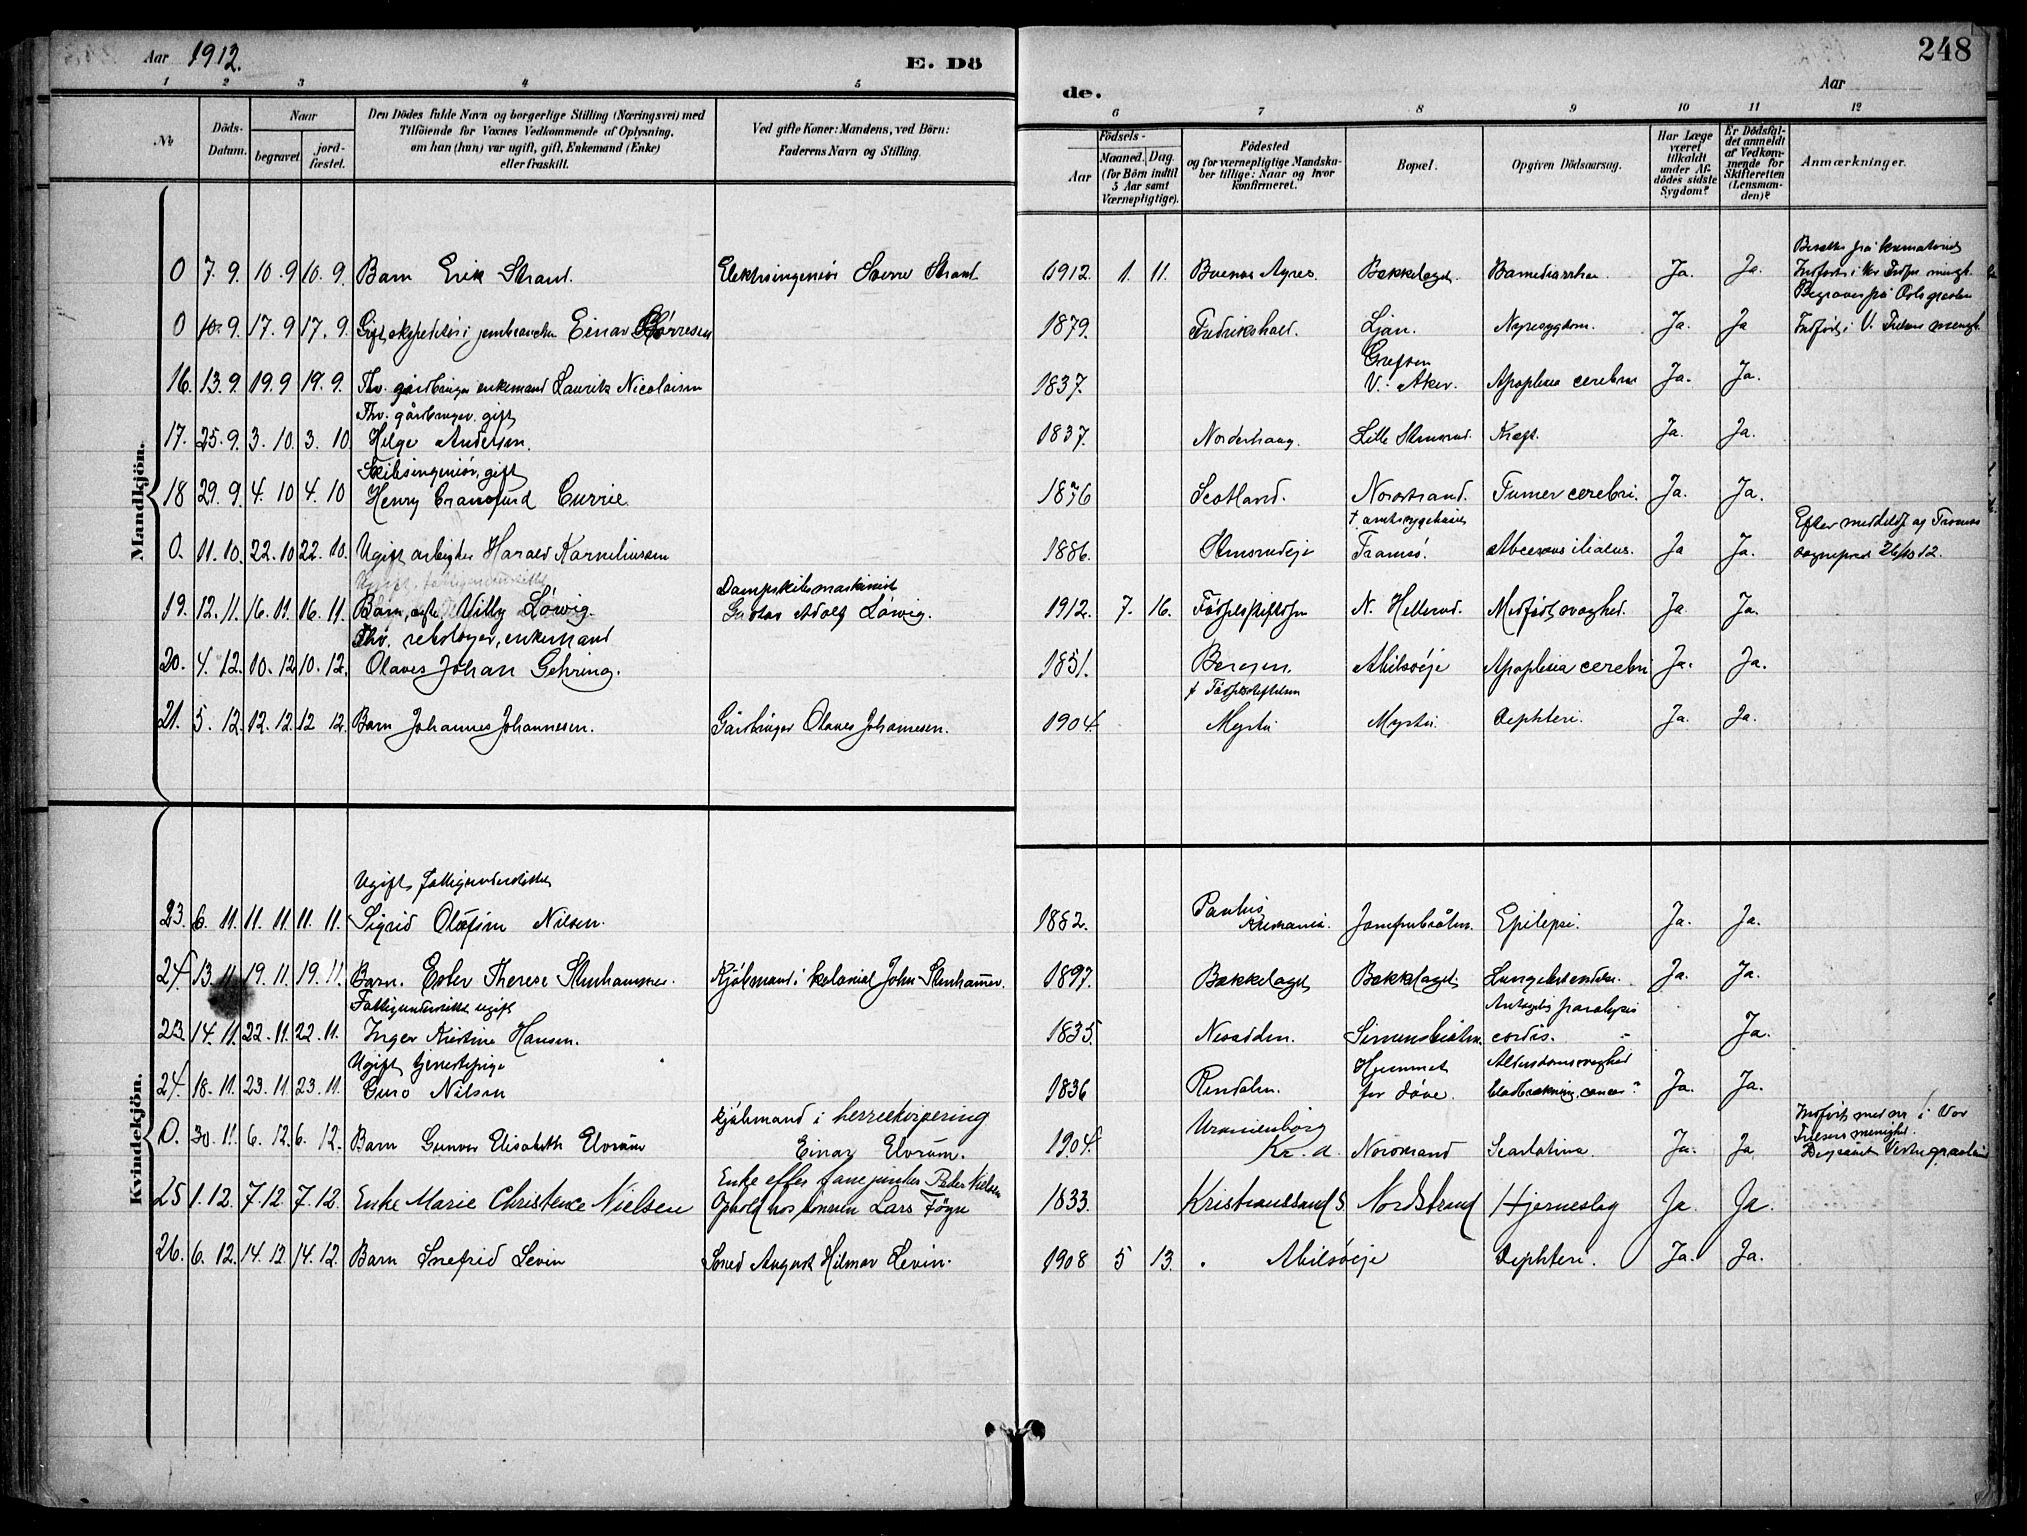 Aar 1912.
E. Dö
de.
Aar
248
1 2 3 4 5 6 7 8 9 10 11 12
No
Döds-Datum.
Naar
begravet. jord-fæstet.
Den Dödes fulde Navn og borgerlige Stilling (Næringsvei) med
Tilföiende for Voxnes Vedkommende af Oplysning,
om han (hun) var ugift, gift, Enkemand (Enke)
eller fraskilt.
Ved gifte Koner: Mandens, ved Börn:
Faderens Navn og Stilling.
Födsels-
Aar
Maaned. Dag.
(for Börn indtil
5 Aar samt
Værnepligtige).
Födested
og for værnepligtige Mandska-
ber tillige: Naar og hvor
konfirmeret.
Bopæl.
Opgiven Dödsaarsag.
Har Læge
været
tilkaldt
under Af-
dödes sidste
Sygdom?
Er Dödsfal-
det anmeldt
af Vedkom-
mende for
Skifteretten
(Lensman-
den)?
Anmærkninger.
Mandkjön.
0 7. 9. 10. 9 10. 9. Barn Erik Strand. Elektroingeniør Sverre Strand 1912. 1. 11. Buenos Ayres. Bækkelaget. Ja. Ja.
0 10. 9. 17. 9 17. 9. Gift ekspeditør i jernbranchen Einar Børresen 1879. Fredrikshald. Ljan. Nyresygdom. Ja. Ja
Grefsen
16. 13. 9 19. 9 19. 9. Fhv. gårdbruger enkemand Lauritz Nicolaisen 1837. V. Aker. Apoplexia cerebri Ja. Ja.
Fhv. gårdbruger. gift
17. 25. 9 3. 10. 3. 10 Helge Andersen. 1837. Norderhaug. Lille Stensrud. Kræft. Ja. Ja.
Skibsingeniør, gift
18 29. 9. 4. 10 4. 10 Henry Cranfurd Currie 1876 Scotland. Nordstrand. Tumor cerebri. Ja. Ja.
† amtssygehuset
0. 11. 10. 22. 10 22. 10. Ugift arbeider Harald Korneliussen 1886. Stensrudeje Tromsø. Ja Ja. sogneprest 26/10 12.
Dampskibsmaskinist
19. 12. 11. 16. 11. 16. 11. Barn, Willy Löwig. Gustav Adolf Löwig. 1912. 7. 16. Fødselsstiftelsen N. Hellerud. Medfødt svaghed. Ja Ja.
Fhv. rebslager, enkemand
20. 4. 12. 10. 12 10. 12. Olaves Johan Gehring. 1851. Bergen. Abilsøeje Apoplexia cerebri Ja. Ja.
† Fødselsstiftelsen
21. 5. 12. 12. 12. 12 12. Barn Johannes Johannesen. Gårdbruger Olaves Johannesen. 1904. Myrer Myrer Dephteri. Ja. Ja.
Kvindekjön.
Ugift, fattigunderstøttet
23. 6. 11. 11. 11. 11. 11. Sigrid Olafine Nilsen. 1882. Paulus Kristiania. Jomfrubråten. Epilepsi. Ja. Ja.
24 13. 11. 19. 11. 19. 11. Barn. Ester Therese Stenhammer. Kjøbmand i kolonial John Stenhammer. 1897. Bækkelaget Bækkelaget Lungebetændelse. Ja. Ja.
Fattigunderstøttet ugift Antagelig paralysis
23 14. 11. 22. 11. 22. 11. Inger Kirstine Hansen. 1835. Nesodden. Simensbråten. cordis. - Ja.
Ugift tjenestepige Hjemmet Alderdomssvaghed
24. 18. 11. 23. 11 23. 11. Guro Nilsen 1836 Rendalen. for døve. blodbrækning, cancer? Ja. Ja.
kjøbmand i herreekvipering Uranienborg
0. 30. 11. 6. 12. 6. 12. Barn Gunvor Elisabeth Elvrum Einar Elvrum. 1904. Kr. a. Nordstrand Scarlatina. Ja. Ja
Enke efter fanejunker Peder Nielsen
25 1. 12. 7. 12. 7. 12. Enke Marie Christence Nielsen Ophold hos Lars Føyn 1833. Kristianssand S. Nordstrand Hjerneslag Ja. Ja.
26. 6. 12. 14. 12 14. 12. Barn Snefrid Levin Smed August Hilmar Levin. 1908 5 13. Abilsøeje Dephteri. Ja. Ja.